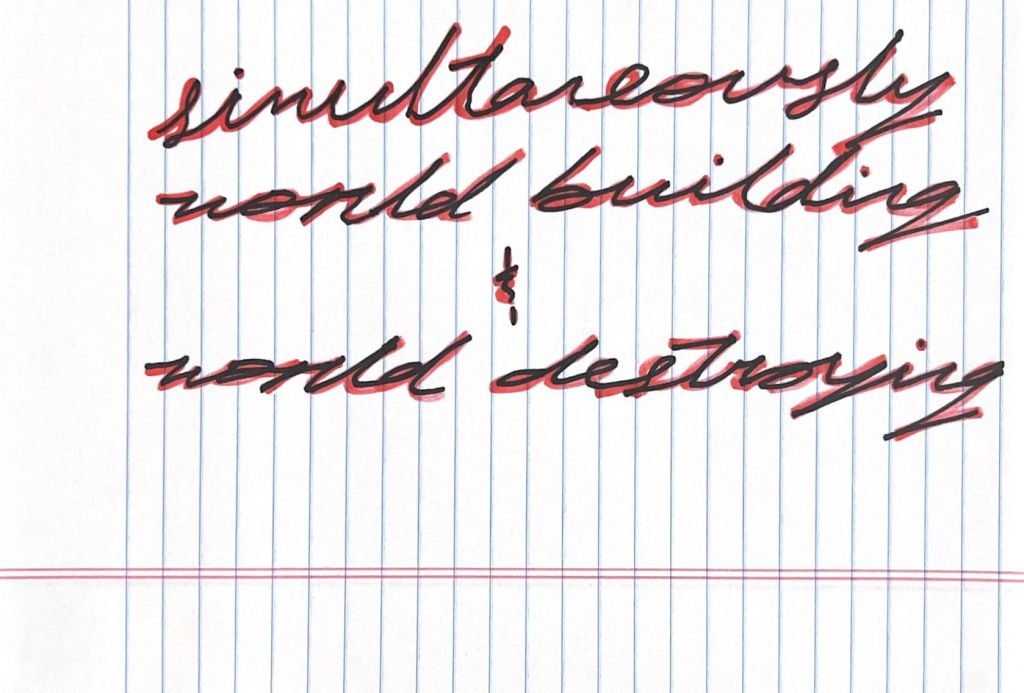 simultaneously
world building
&
world destroying